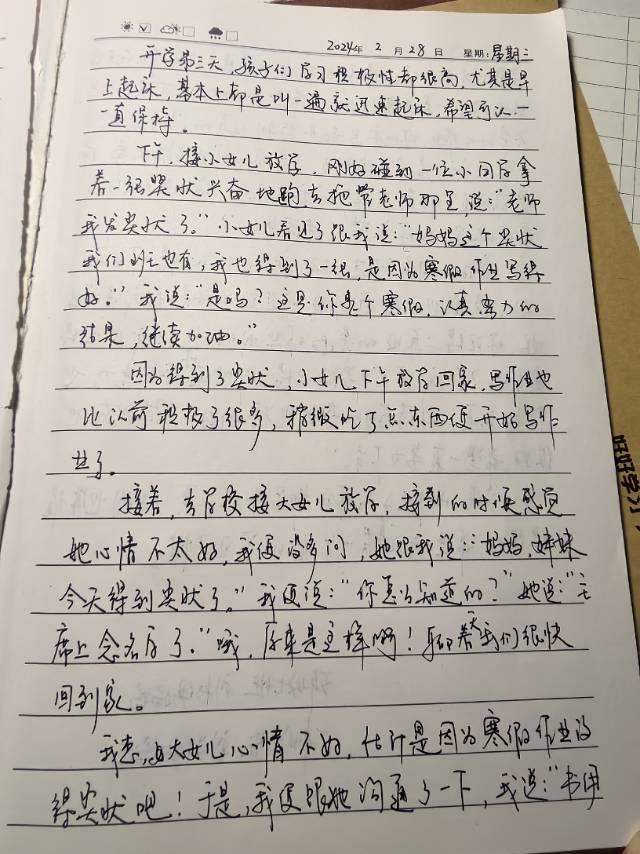 2024年 2 月 28 日 星期: 星期三
开学第三天，孩子们学习积极性都很高，尤其是早
上起床，基本上都是叫一遍就迅速起床，希望可以一
一直保持。
下午，接小女儿放学，刚好碰到一位小同学拿
着一张奖状兴奋地跑去托管老师那里，说：“老师
我发奖状了。”小女儿看见了跟我说：“妈妈这个奖状
我们班也有，我也得到了一张，是因为寒假作业写得
好。”我说：“是吗？这是你是个寒假，认真努力的
结果，继续加油。”
因为得到了奖状，小女儿下午放学回家，写作业也
比以前积极了很多，稍微吃了点东西便开始写作
业了。
接着，去学校接大女儿放学，接到的时候感觉
她心情不太好，我便没多问，她跟我说：“妈妈，妹妹
今天得到奖状了。”我便说：“你怎么知道的？”她说：“主
席上念名字了。”哦，原来是这样啊！聊着天我们很快
回到家。
我想，大女儿心情不好，估计是因为寒假作业没
得奖状吧！于是，我便跟她沟通了一下，我说：“书用
好好学习